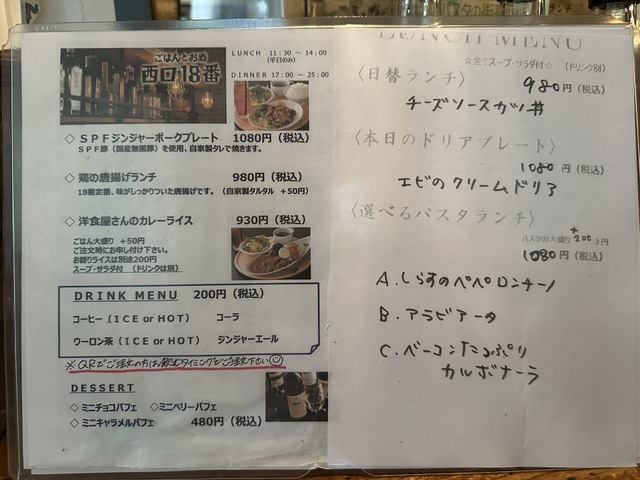 ごはんとお酒
西口18番
LUNCH 11:30 ~ 14:00
(平日のみ)
DINNER 17:00 ~ 25:00
◇ SPFジンジャーポークプレート 1080円（税込）
SPF豚（国産無菌豚）を使用、自家製タレで焼きます。
◇ 鶏の唐揚げランチ 980円（税込）
18番定番、味がしっかりついた唐揚げです。（自家製タルタル +50円）
◇ 洋食屋さんのカレーライス 930円（税込）
ごはん大盛り +50円
ご注文時にお申し付け下さい。
お替りライスは別途200円
スープ・サラダ付 （ドリンクは別）
DRINK MENU 200円（税込）
コーヒー（ICE or HOT） コーラ
ウーロン茶（ICE or HOT） ジンジャーエール
※QRでご注文の方は飲むタイミングでご注文下さい
DESSERT
◇ ミニチョコパフェ ◇ ミニベリーパフェ
◇ ミニキャラメルパフェ 480円（税込）
LUNCH MENU
☆全てスープ・サラダ付☆ （ドリンク別）
〈日替ランチ〉 980円（税込）
チーズソースカツ丼
〈本日のドリアプレート〉
1080円（税込）
エビのクリームドリア
〈選べるパスタランチ〉
パスタの大盛り +200円
1080円（税込）
A. しらすのペペロンチーノ
B. アラビアータ
C. ベーコンたっぷり
カルボナーラ